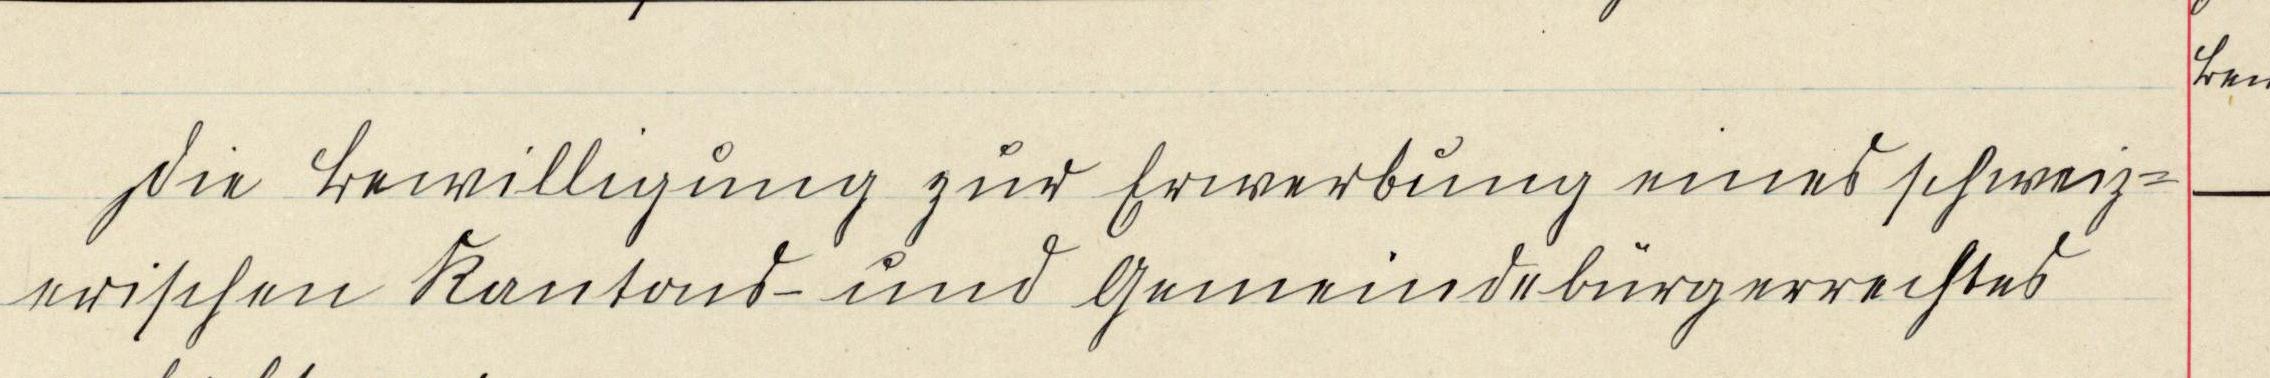 Die Bewilligung zur Erwerbung eines schweiz=
erischen Kantons- und Gemeindebürgerrechtes